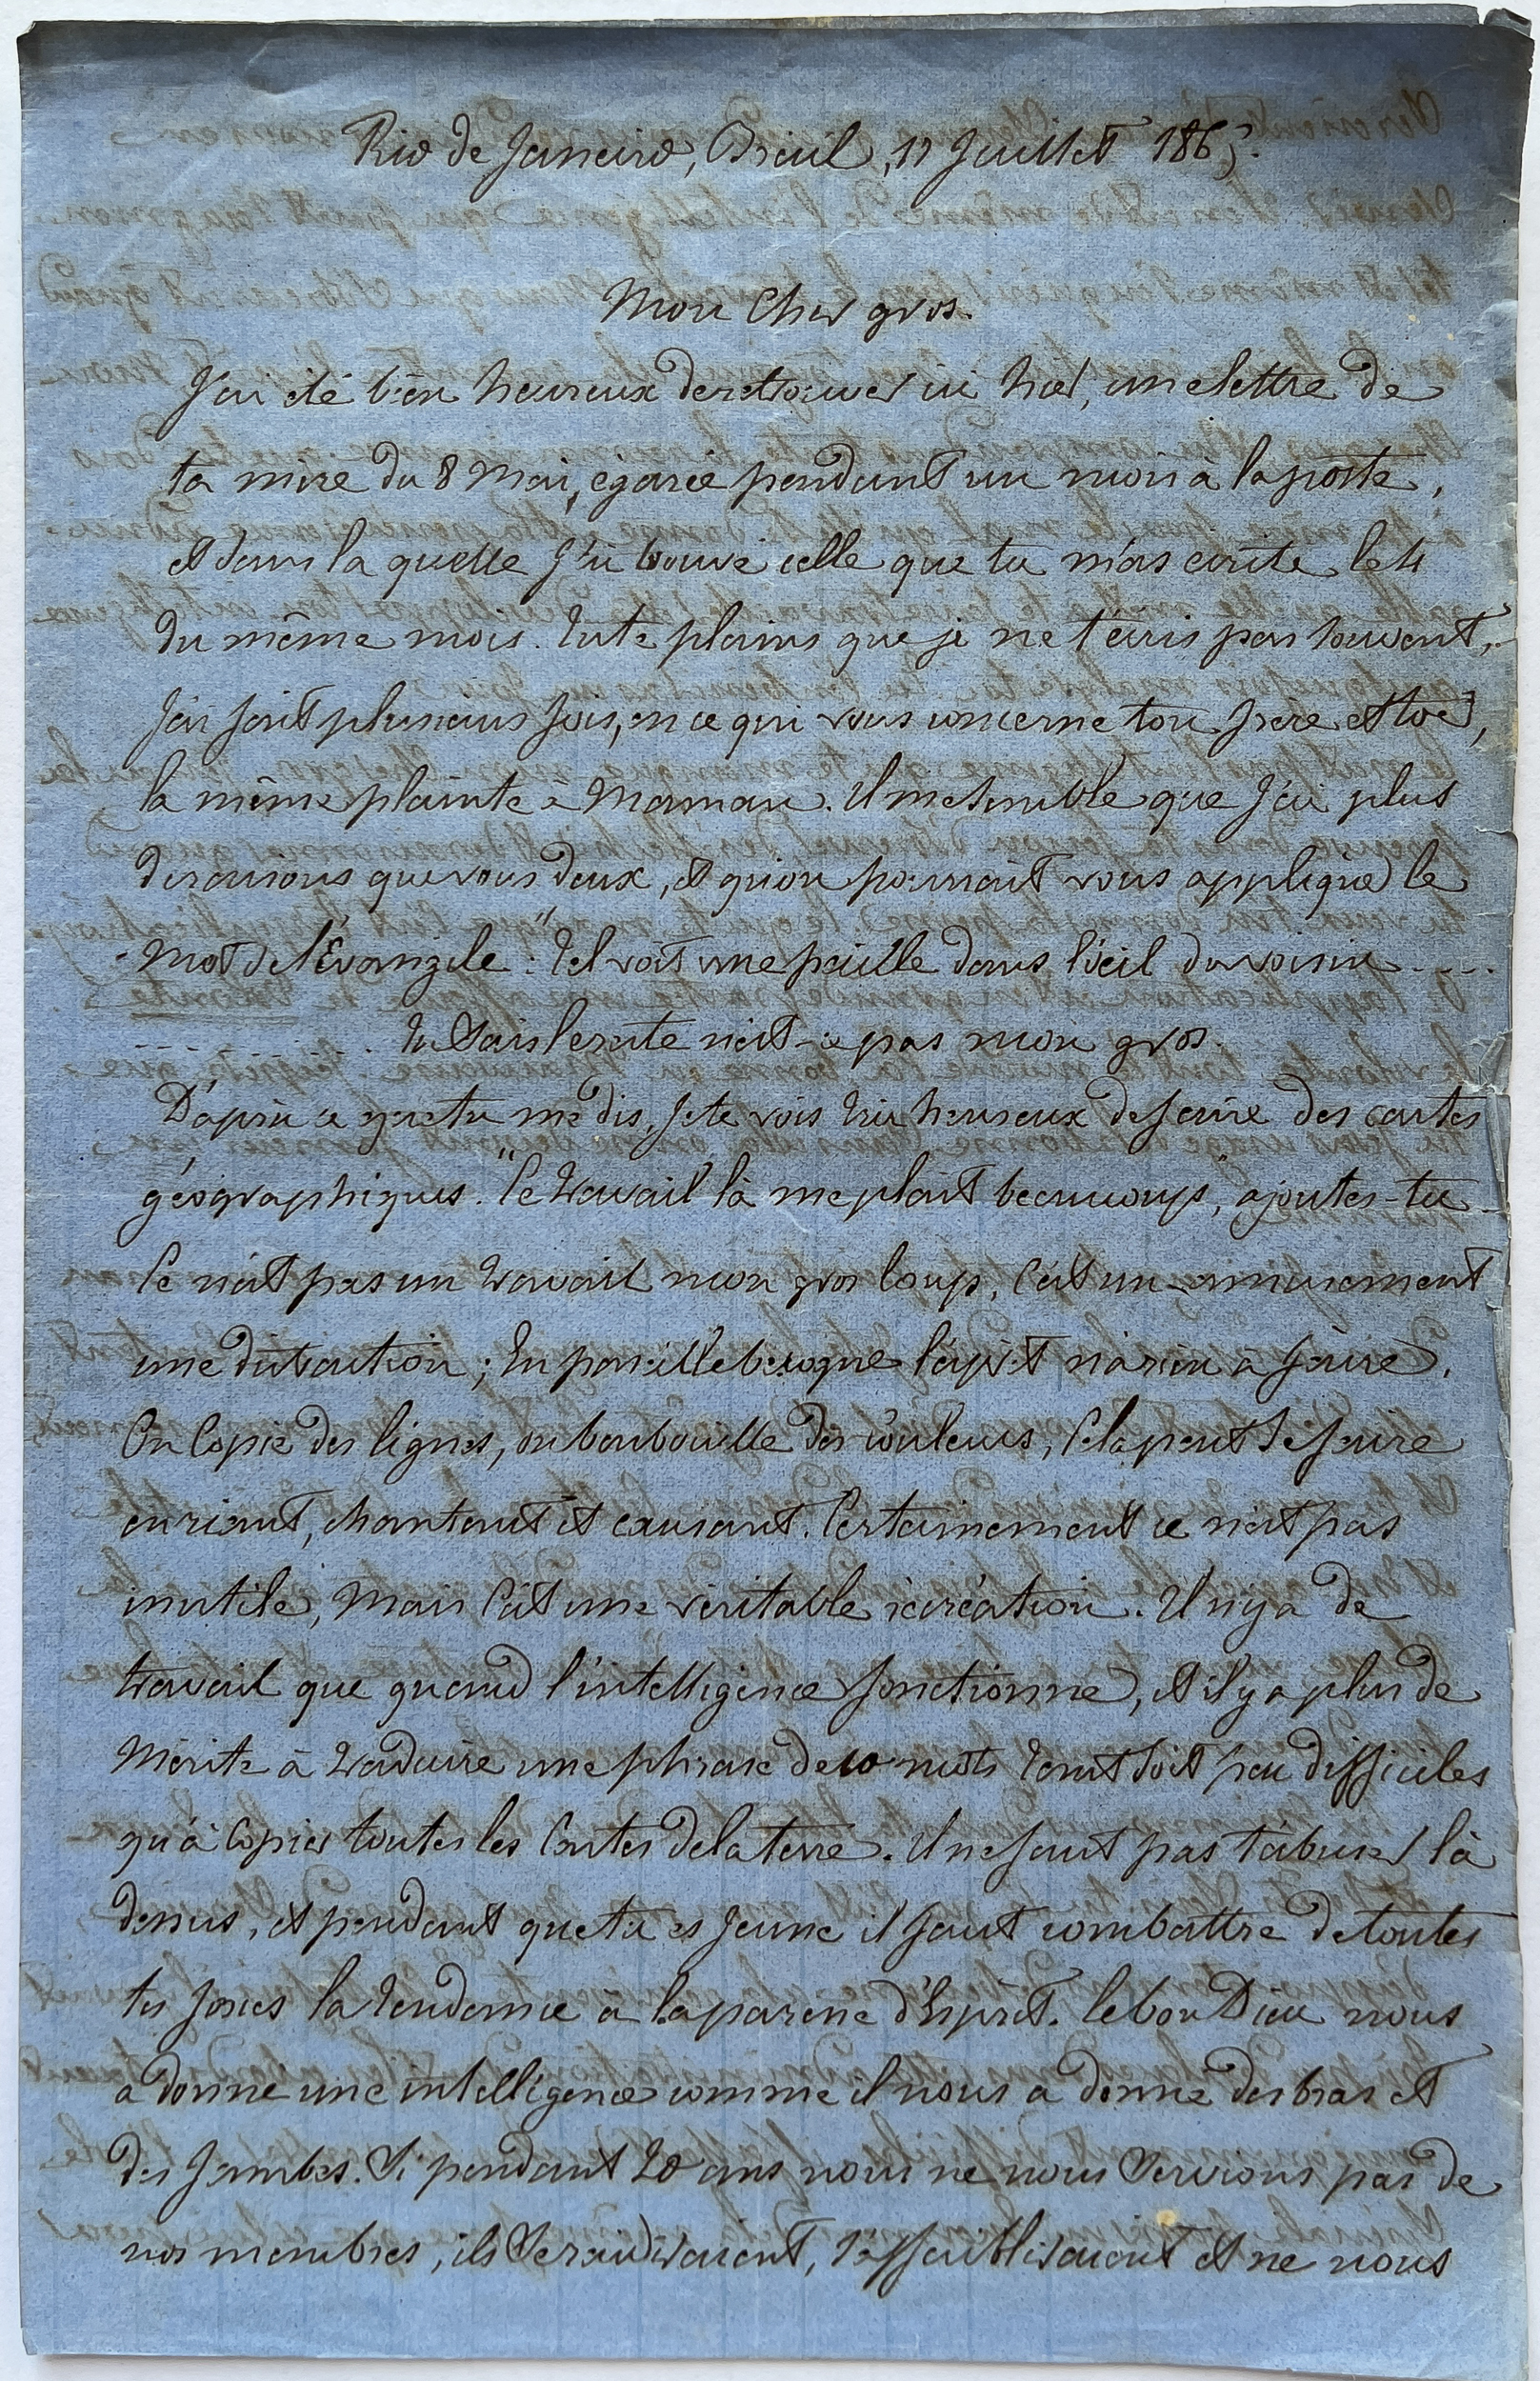 Rio de Janeiro, Brésil, 17 Juillet 1865.
Mon Cher gros.
J'ai été bien heureux de retrouver ici hier, une lettre de
ta mère du 8 Mai, égarée pendant un mois à la poste,
et dans la quelle j'ai trouvé celle que tu m'as écrite le 4
du même mois. Tu te plains que je ne t'écris pas souvent,
J'ai fait plusieurs fois, en ce qui vous concerne ton frère et toi,
la même plainte à Maman. Il me semble que j'ai plus
de raisons que vous deux, et qu'on pourrait vous appliquer le
mot de l'Évangile : "Tel voit une paille dans l'œil du voisin ....
........... Tu sais le reste n'est-ce pas mon gros.
D'après ce que tu me dis, je te vois très heureux de faire des cartes
géographiques. "Ce travail là me plait beaucoup", ajoutes-tu
Ce n'est pas un travail mon gros loup, c'est un amusement
une distraction ; En pareille besogne l'esprit n'a rien à faire.
On copie des lignes, on barbouille des couleurs, Cela peut se faire
en riant, chantant et causant. Certainement ce n'est pas
inutile, Mais c'est une véritable récréation. Il n'y a de
travail que quand l'intelligence fonctionne, et il y a plus de
Mérite à traduire une phrase de 10 mots tant soit peu difficiles
qu'à copier toutes les Cartes de la terre. Il ne faut pas t'abuser là
dessus, et pendant que tu es jeune il faut combattre de toutes
tes forces la tendance à la paresse d'Esprit. le bon Dieu nous
a donné une intelligence comme il nous a donné des bras et
des Jambes. Si pendant 20 ans nous ne nous Servions pas de
nos membres, ils Se raidiraient, s'affaibliraient et ne nous